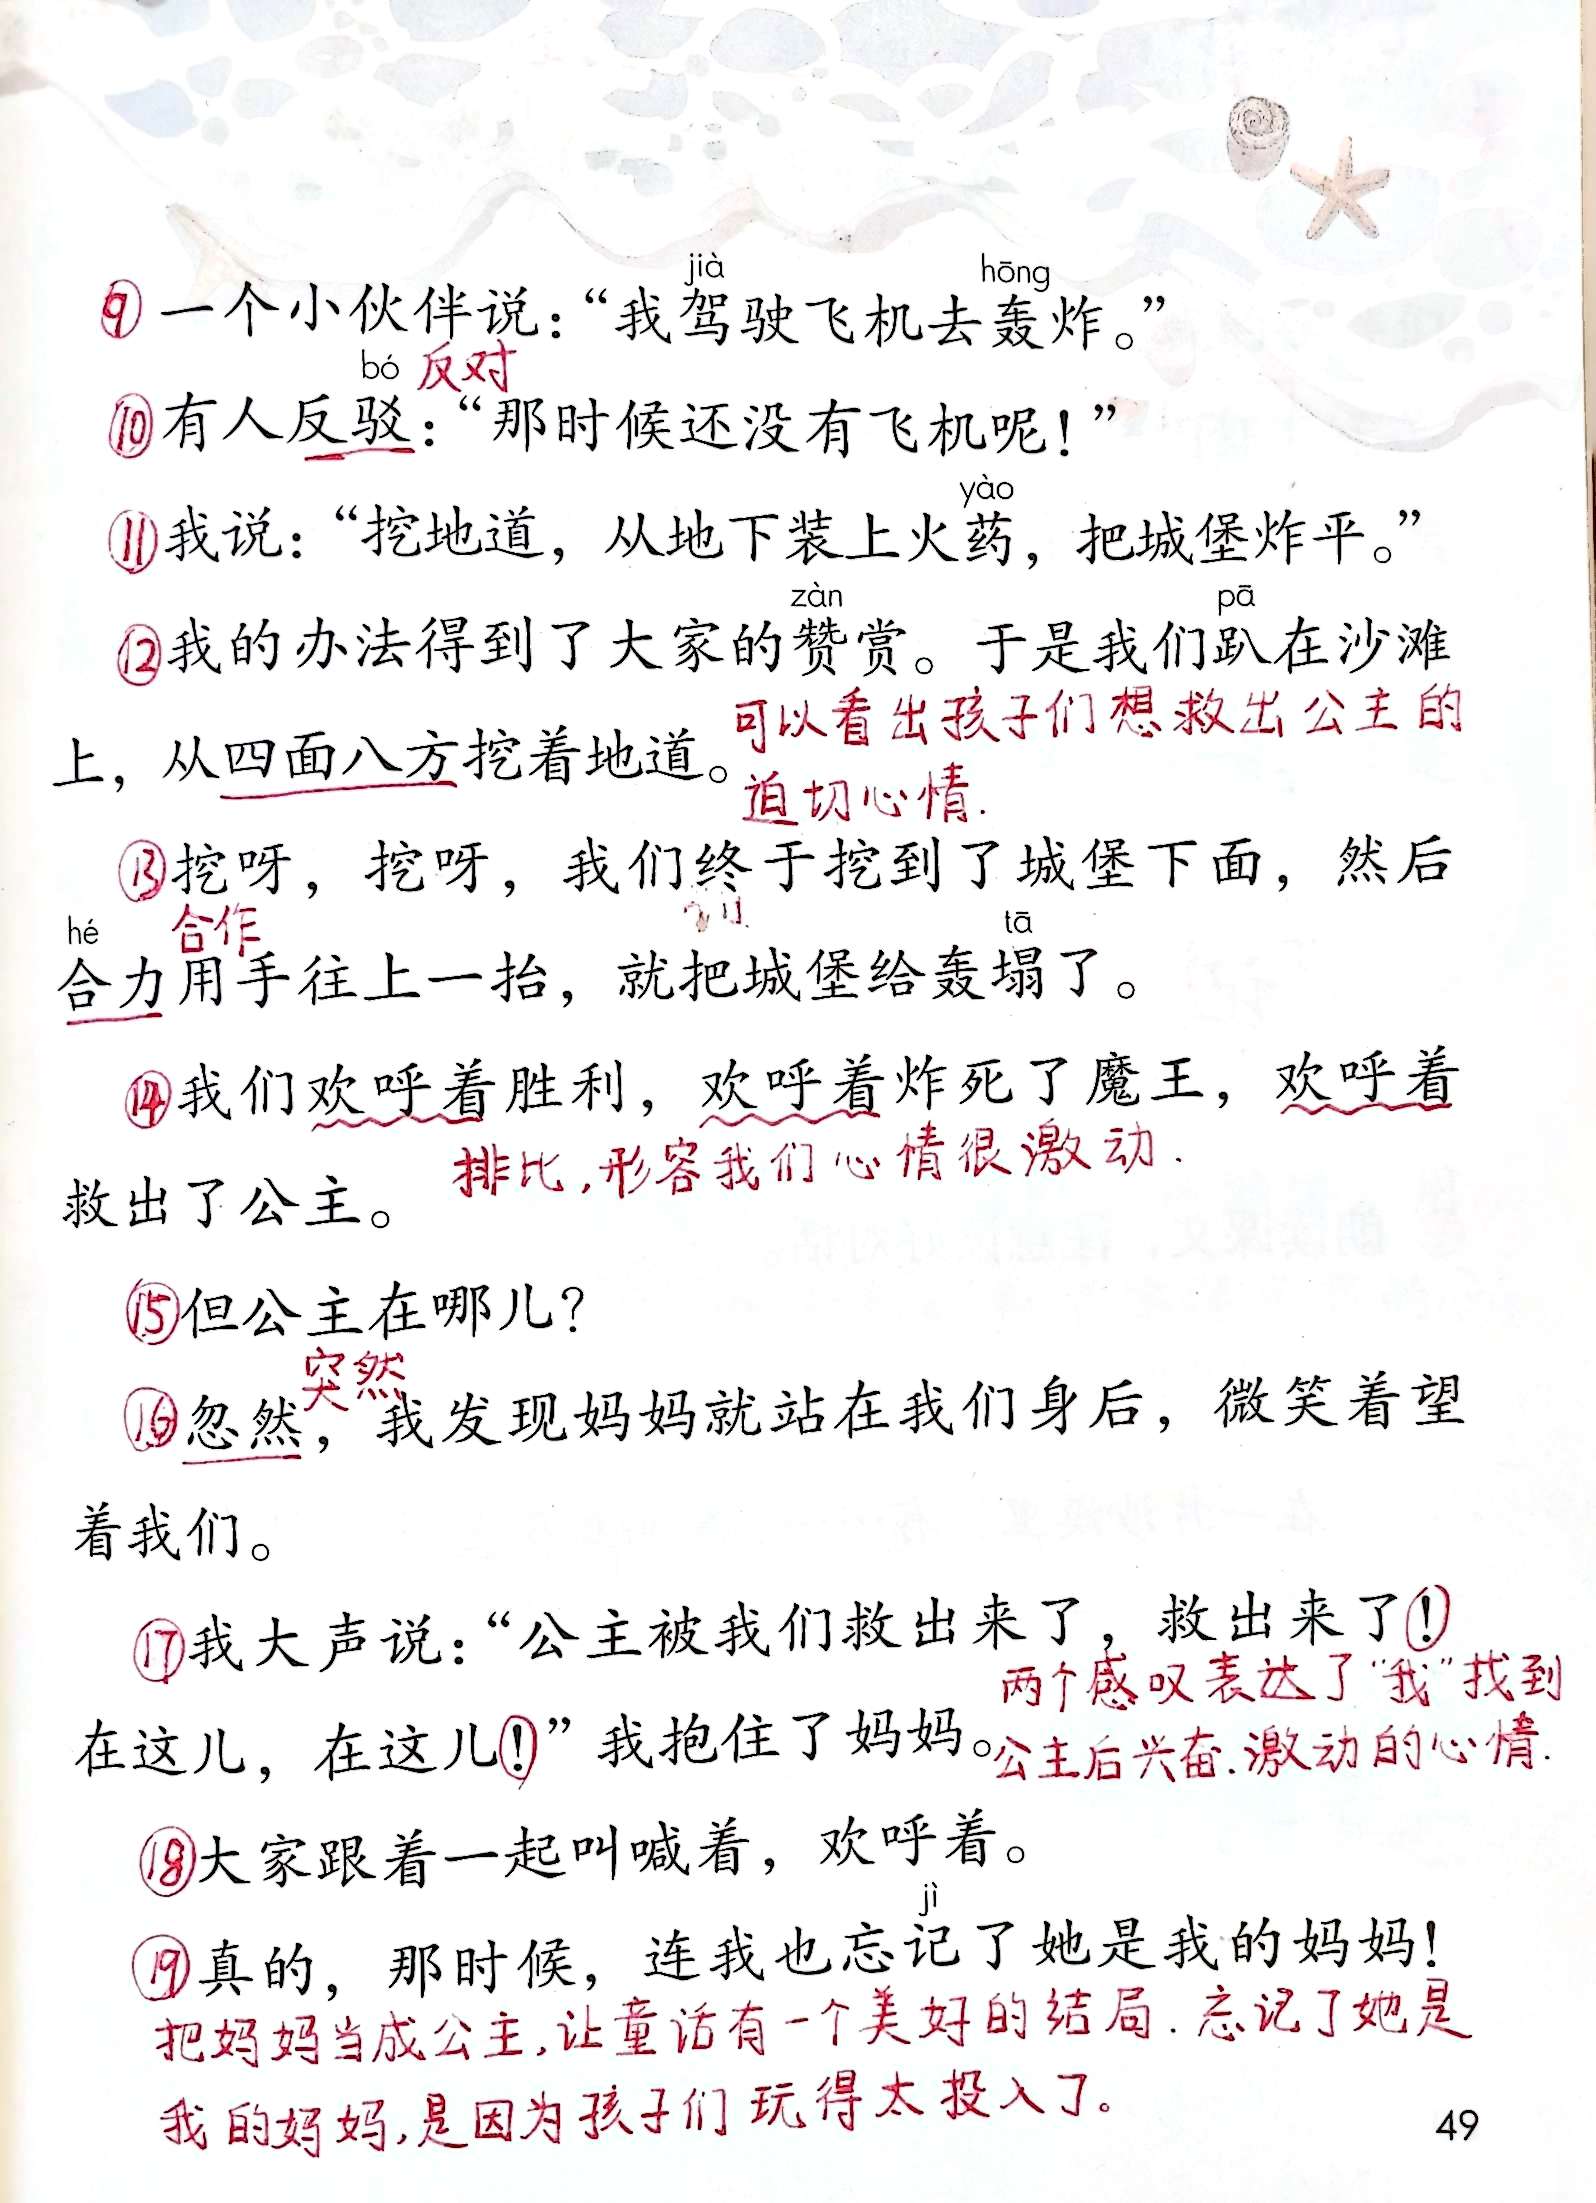 jià hōng
⑨ 一个小伙伴说：“我驾驶飞机去轰炸。”
bó 反对
⑩ 有人反驳：“那时候还没有飞机呢！”
yào
⑪ 我说：“挖地道，从地下装上火药，把城堡炸平。”
zàn pā
⑫ 我的办法得到了大家的赞赏。于是我们趴在沙滩
可以看出孩子们想救出公主的
上，从四面八方挖着地道。
迫切心情.
⑬ 挖呀，挖呀，我们终于挖到了城堡下面，然后
hé 合作 tā
合力用手往上一抬，就把城堡给轰塌了。
⑭ 我们欢呼着胜利，欢呼着炸死了魔王，欢呼着
排比,形容我们心情很激动.
救出了公主。
⑮ 但公主在哪儿？
突然
⑯ 忽然，我发现妈妈就站在我们身后，微笑着望
着我们。
⑰ 我大声说：“公主被我们救出来了，救出来了！
两个感叹表达了“我”找到
在这儿，在这儿！”我抱住了妈妈。
公主后兴奋.激动的心情.
⑱ 大家跟着一起叫喊着，欢呼着。
jì
⑲ 真的，那时候，连我也忘记了她是我的妈妈！
把妈妈当成公主,让童话有一个美好的结局.忘记了她是
我的妈妈,是因为孩子们玩得太投入了。
49